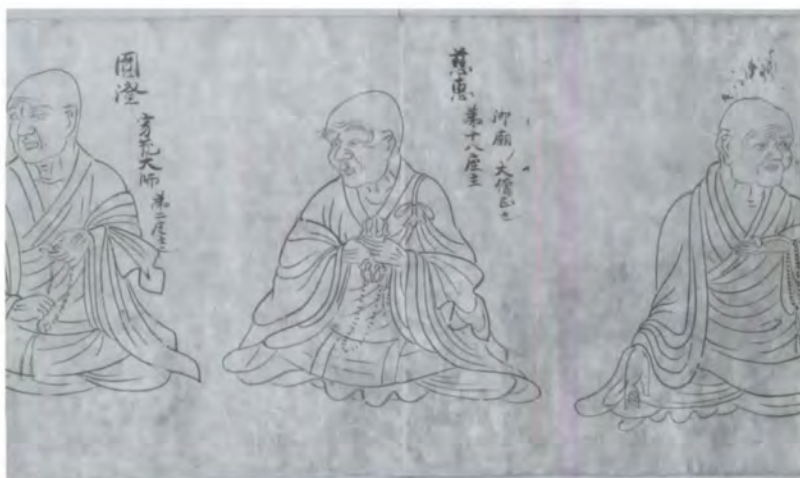 慈恵
御廟ノ大僧正也
第十八座主
圓澄
寂光大師 第二座主也